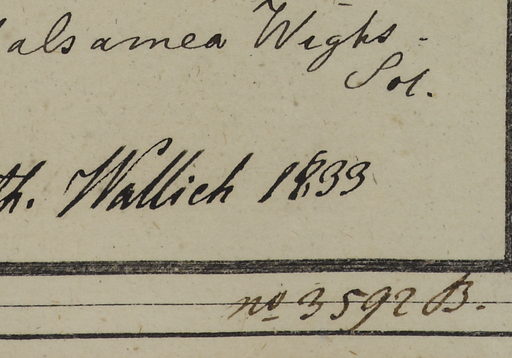 alsamea Wight -
Sol.
th. Wallich 1833
no 3592 B.